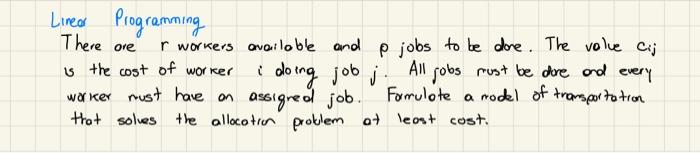 Linear Programming
There are r workers available and p jobs to be done. The value cij
is the cost of worker i doing job j. All jobs must be done and every
worker must have an assigned job. Formulate a model of transportation
that solves the allocation problem at least cost.